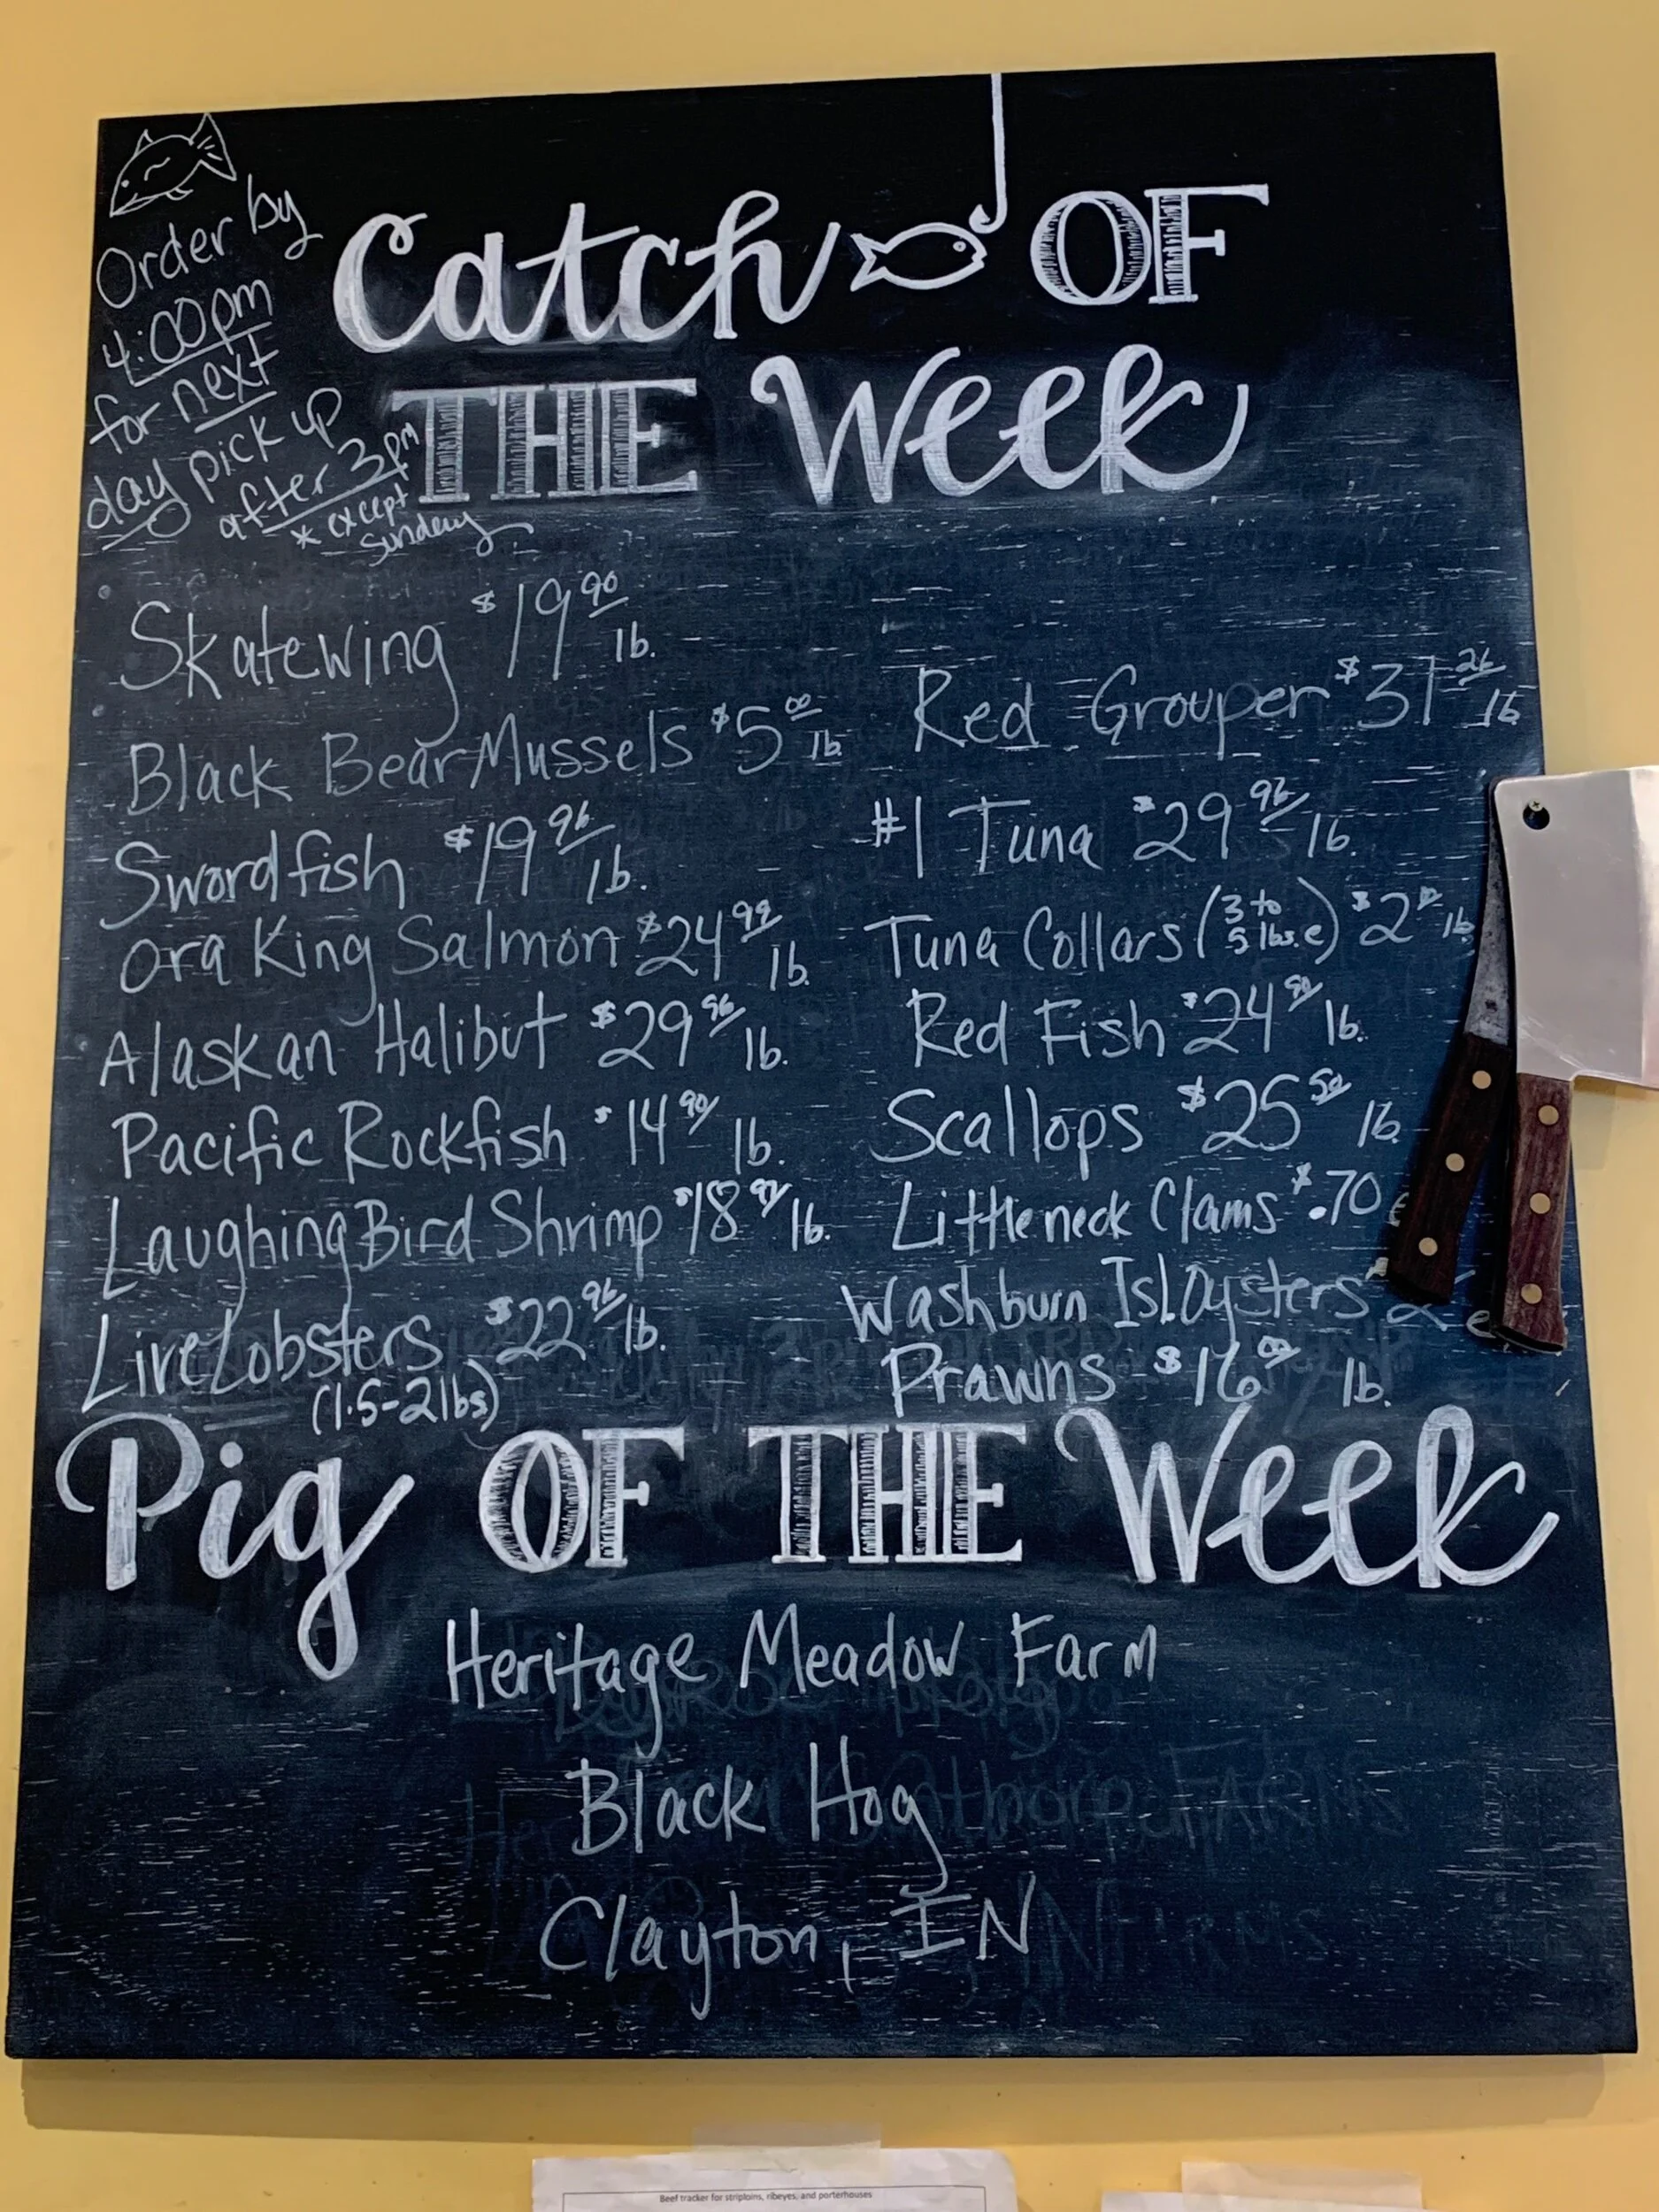 Order by
4:00pm
for next
day pick up
after 3pm
* except
Sunday
Catch OF
THE Week
Skatewing $19.90 lb.
Black Bear Mussels $5.00 lb.
Swordfish $19.96 lb.
Ora King Salmon $24.99 lb.
Alaskan Halibut $29.96 lb.
Pacific Rockfish $14.90 lb.
Laughing Bird Shrimp $18.97 lb.
Live Lobsters $22.96 lb.
(1.5-2lbs)
Red Grouper $31 lb
#1 Tuna $29.96 lb.
Tuna Collars (3 to 5 lbs. e) $2 lb.
Red Fish $24.90 lb.
Scallops $25.50 lb.
Littleneck Clams $.70 e
Washburn Isl. Oysters
Prawns $16.00 lb.
Pig OF THE Week
Heritage Meadow Farm
Black Hog
Clayton, IN
Beef tracker for striploins, ribeyes, and porterhouses